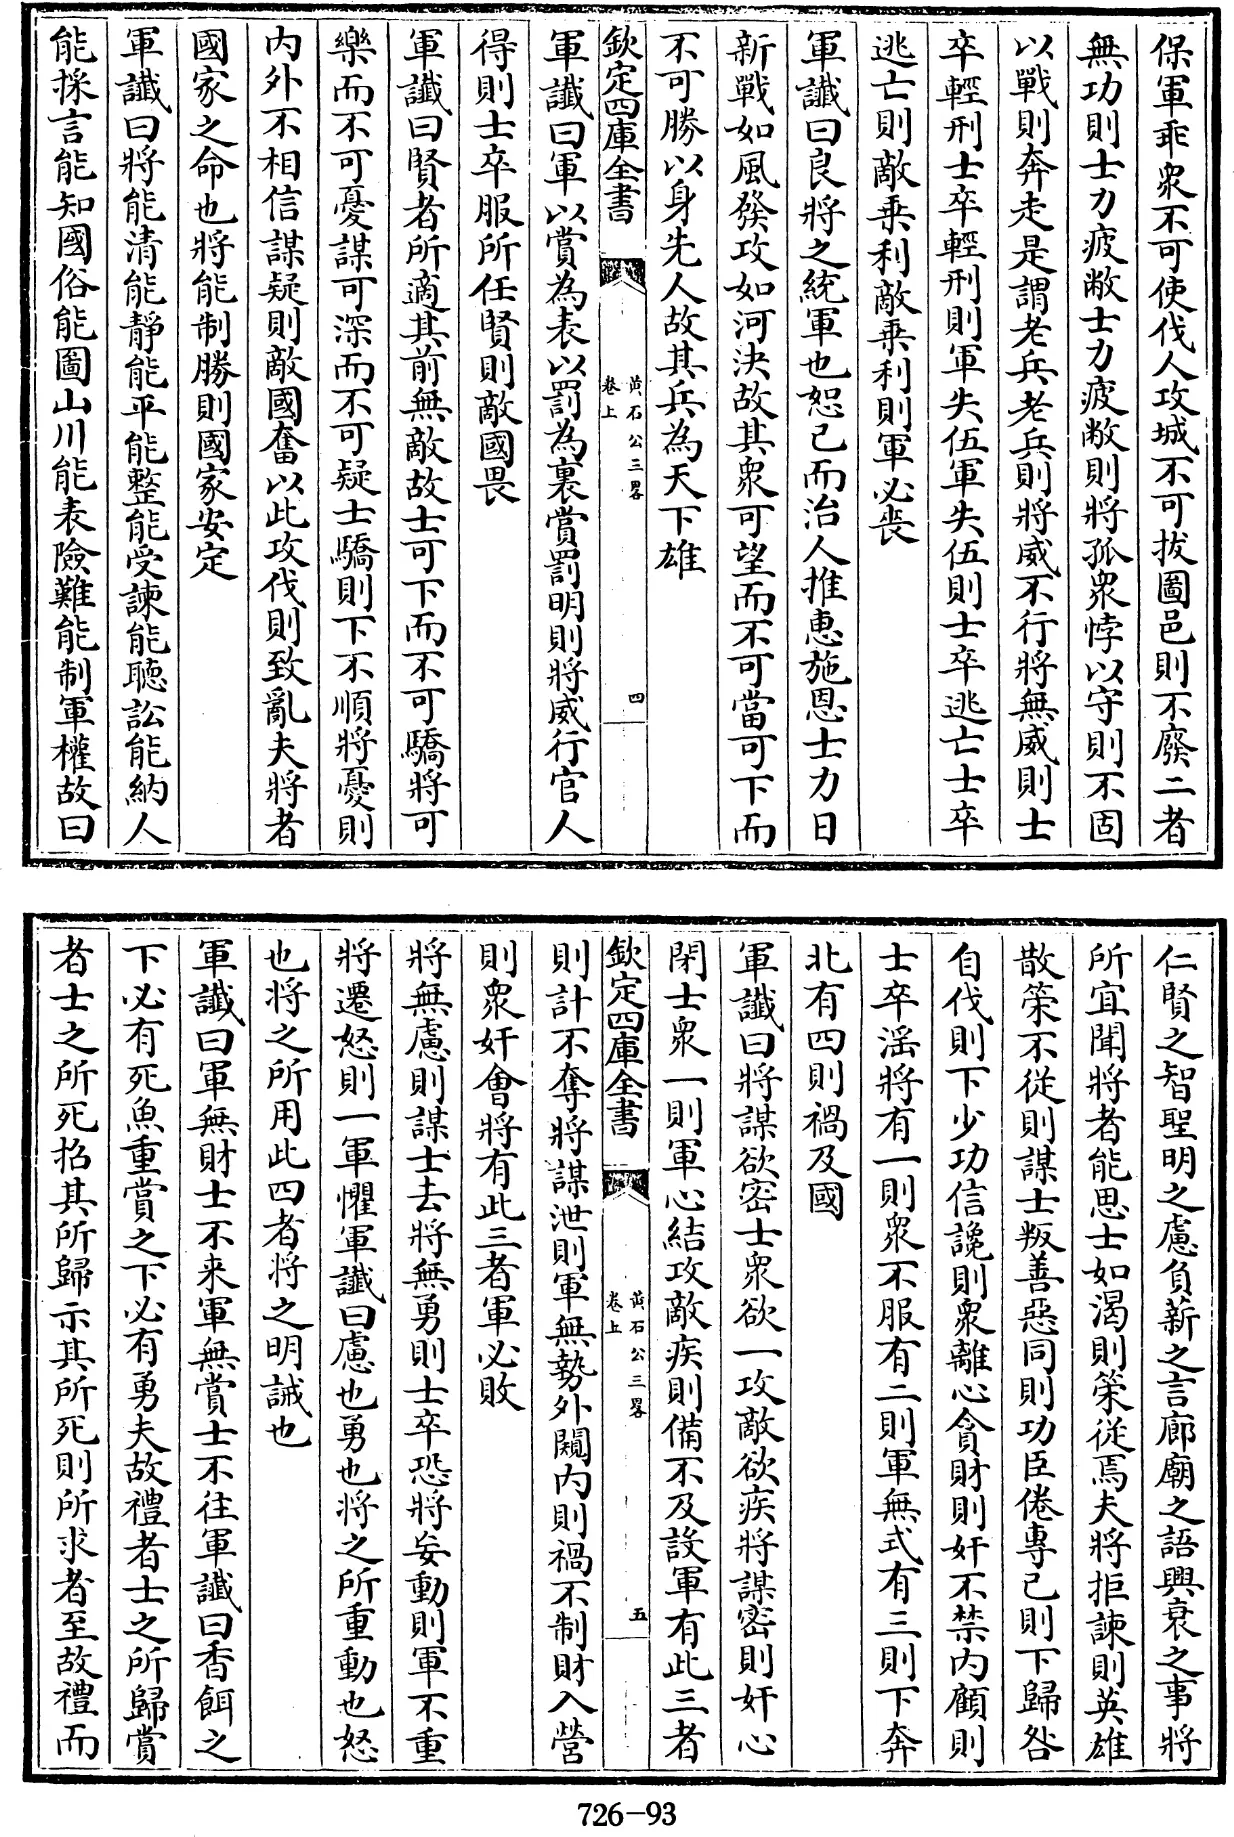 保軍乖衆不可使伐人攻城不可拔圖邑則不廢二者
無功則士力疲敝士力疲敝則將孤衆悖以守則不固
以戰則奔走是謂老兵老兵則將威不行將無威則士
卒輕刑士卒輕刑則軍失伍軍失伍則士卒逃亡士卒
逃亡則敵乗利敵乗利則軍必喪
軍讖曰良將之統軍也恕己而治人推惠施恩士力日
新戰如風發攻如河決故其衆可望而不可當可下而
不可勝以身先人故其兵為天下雄
欽定四庫全書
黄石公三畧
卷上
四
軍讖曰軍以賞為表以罰為裏賞罰明則將威行官人
得則士卒服所任賢則敵國畏
軍讖曰賢者所適其前無敵故士可下而不可驕將可
樂而不可憂謀可深而不可疑士驕則下不順將憂則
内外不相信謀疑則敵國奮以此攻伐則致亂夫將者
國家之命也將能制勝則國家安定
軍讖曰將能清能靜能平能整能受諫能聽訟能納人
能採言能知國俗能圖山川能表險難能制軍權故曰
仁賢之智聖明之慮負薪之言廊廟之語興衰之事將
所宜聞將者能思士如渴則策從焉夫將拒諫則英雄
散策不從則謀士叛善惡同則功臣倦專己則下歸咎
自伐則下少功信讒則衆離心貪財則奸不禁内顧則
士卒淫將有一則衆不服有二則軍無式有三則下奔
北有四則禍及國
軍讖曰將謀欲密士衆欲一攻敵欲疾將謀密則奸心
閉士衆一則軍心結攻敵疾則備不及設軍有此三者
欽定四庫全書
黄石公三畧
卷上
五
則計不奪將謀泄則軍無勢外闚内則禍不制財入營
則衆奸會將有此三者軍必敗
將無慮則謀士去將無勇則士卒恐將妄動則軍不重
將遷怒則一軍懼軍讖曰慮也勇也將之所重動也怒
也將之所用此四者將之明誡也
軍讖曰軍無財士不来軍無賞士不往軍讖曰香餌之
下必有死魚重賞之下必有勇夫故禮者士之所歸賞
者士之所死招其所歸示其所死則所求者至故禮而
726-93